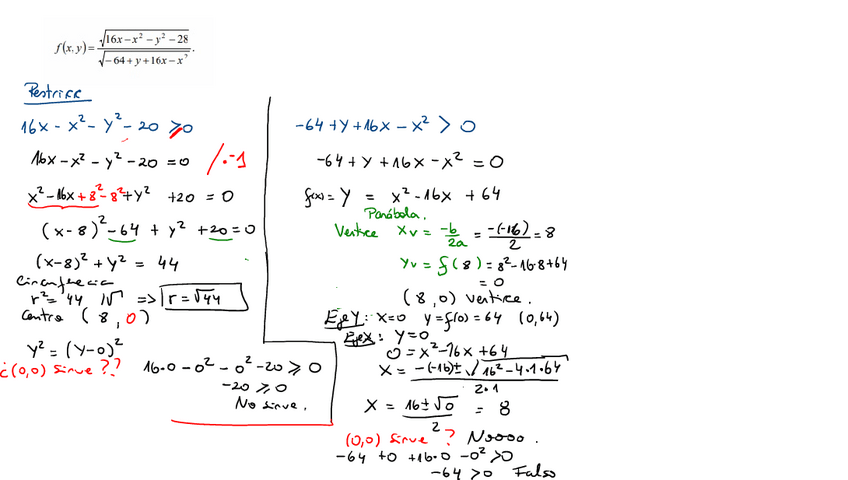 f(x,y) = √(16x − x² − y² − 28) / √(−64 + y + 16x − x²) .
Restricc
16x − x² − y² − 20 ≥ 0
16x − x² − y² − 20 = 0 /·−1
x² − 16x + 8² − 8² + y² + 20 = 0
(x−8)² − 64 + y² + 20 = 0
(x−8)² + y² = 44
Circunferencia
r² = 44 /√ => r = √44
Centro (8, 0)
y² = (y−0)²
¿(0,0) sirve ??
16·0 − 0² − 0² − 20 ≥ 0
−20 ≥ 0
No sirve.
−64 + y + 16x − x² > 0
−64 + y + 16x − x² = 0
f(x) = y = x² − 16x + 64
Parábola.
Vertice xv = −b/2a = −(−16)/2 = 8
yv = f(8) = 8² − 16·8 + 64
= 0
(8,0) vertice.
Eje Y: x=0 y=f(0)=64 (0,64)
Eje X: y=0
0 = x² − 16x + 64
x = −(−16) ± √(16² − 4·1·64) / 2·1
x = 16 ± √0 / 2 = 8
(0,0) sirve ? Noooo.
−64 + 0 + 16·0 − 0² > 0
−64 > 0 Falso